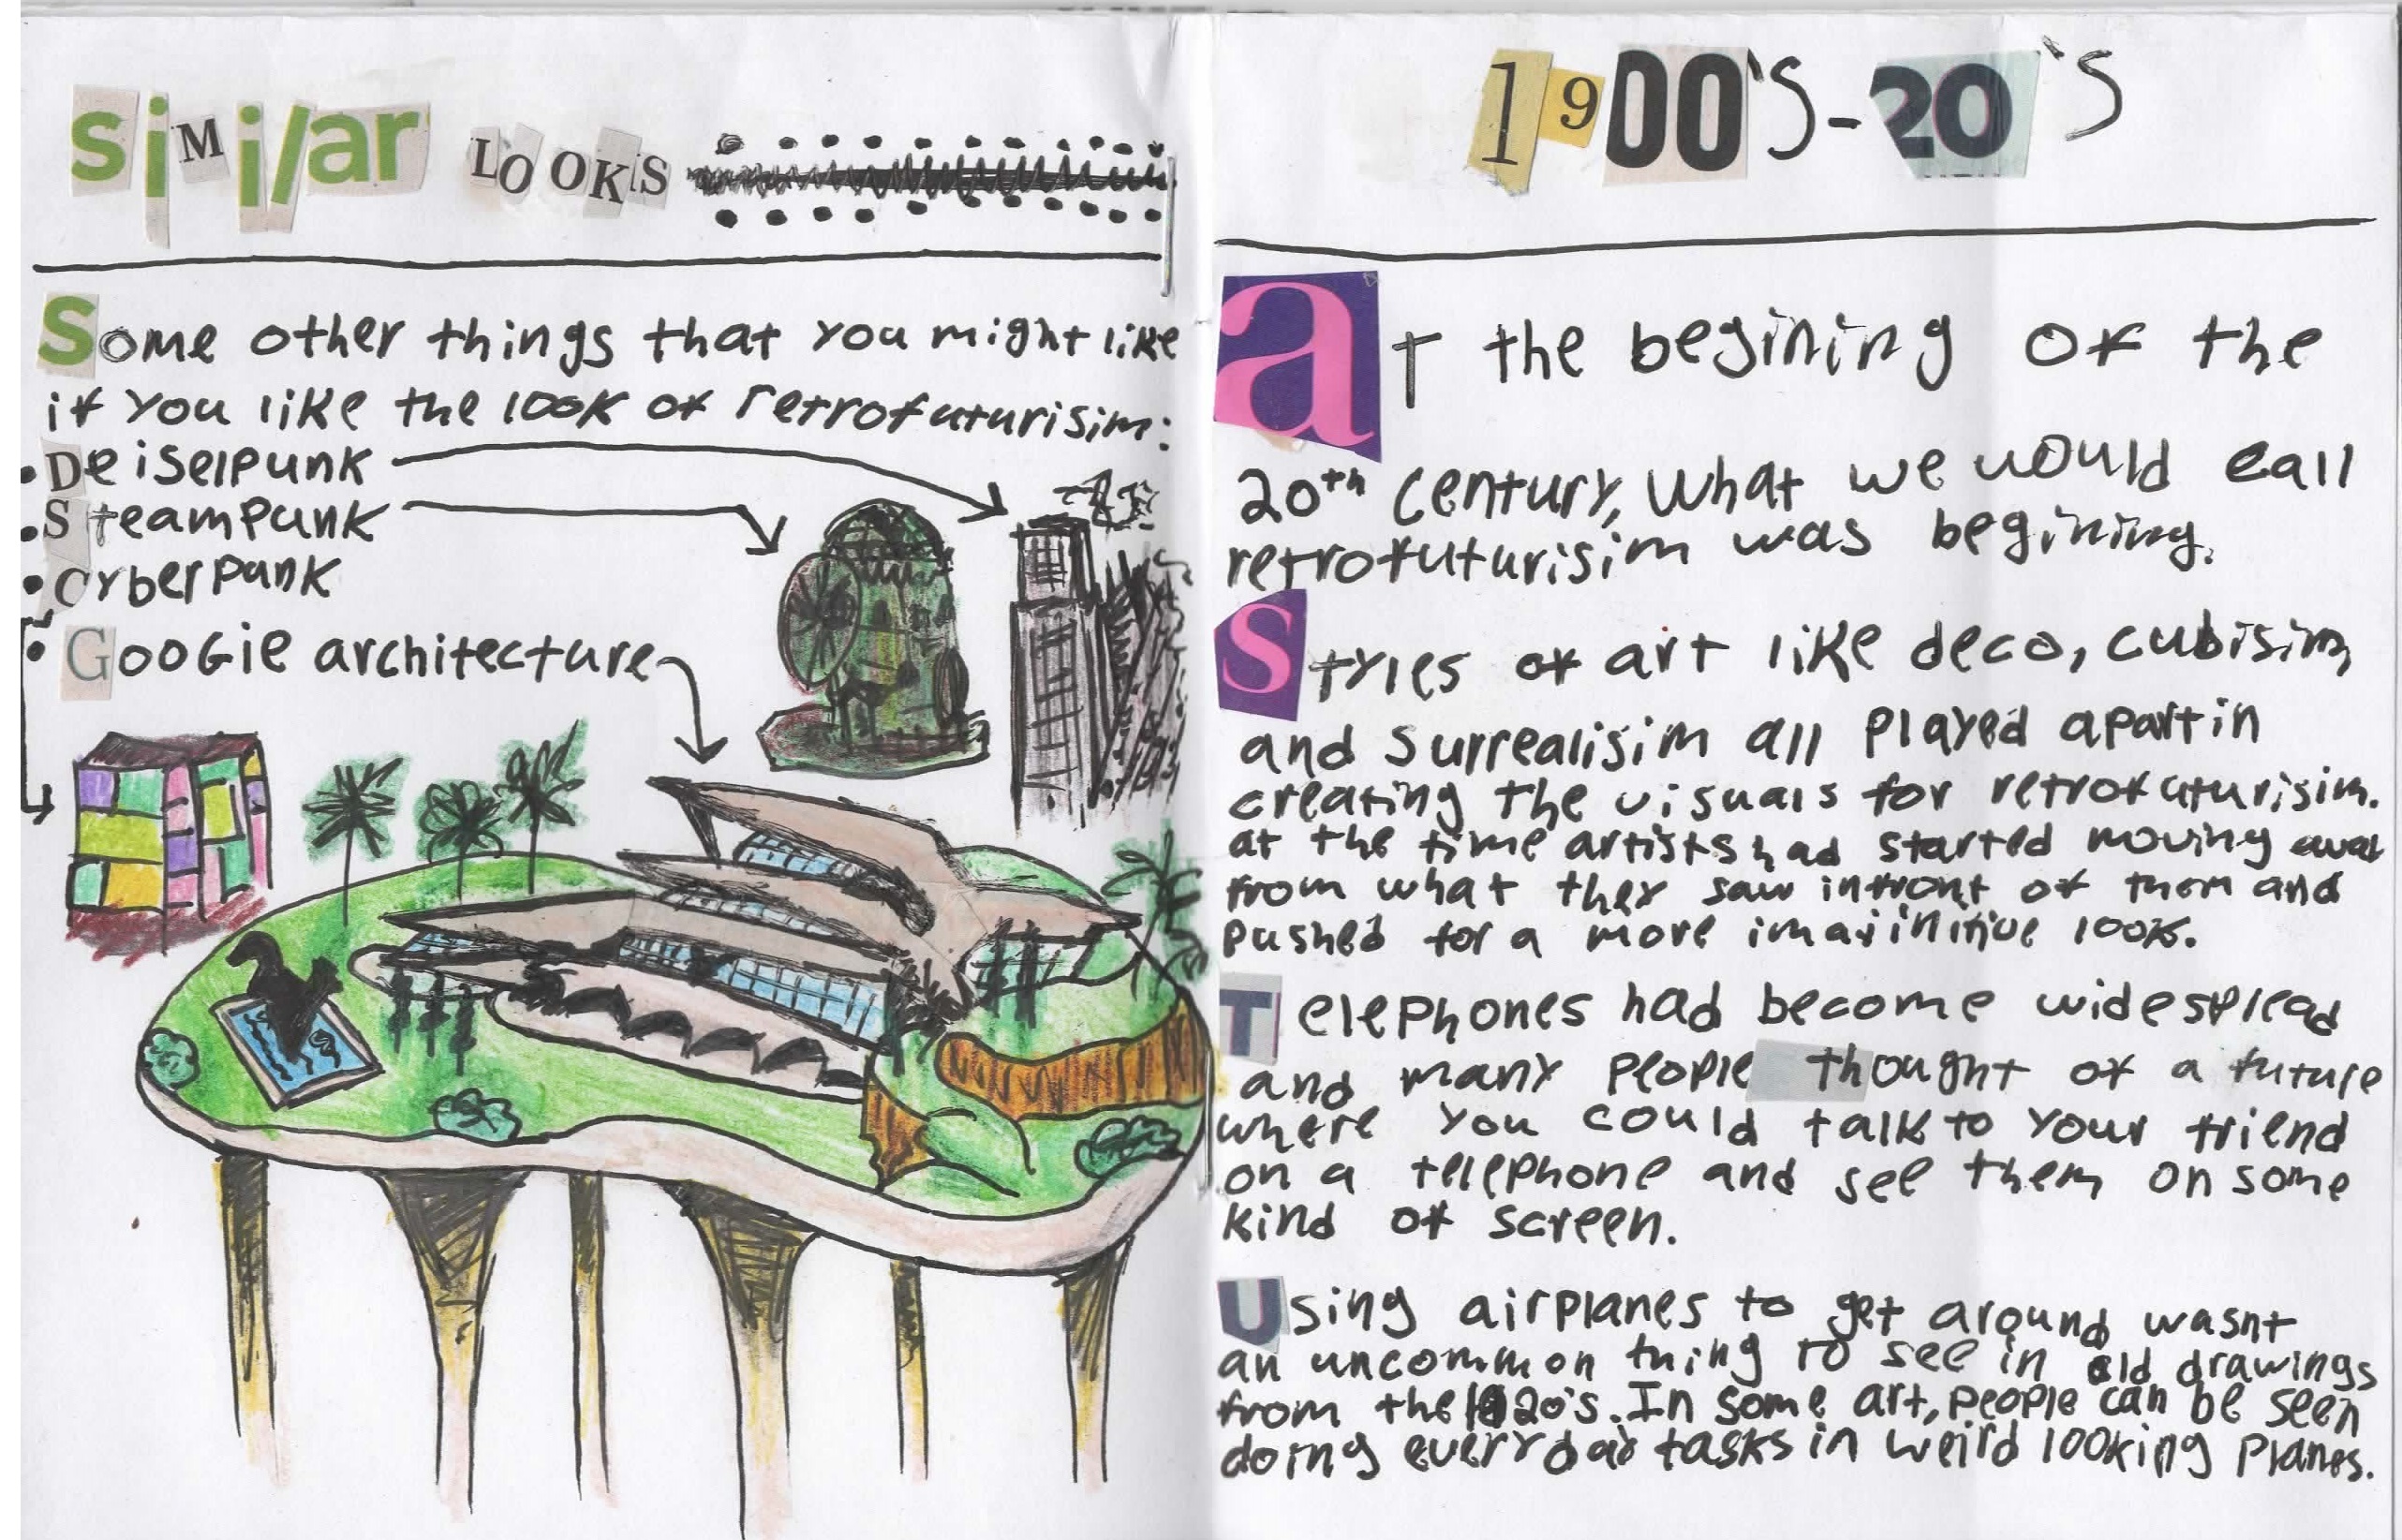 SiMilar LOOKS
Some other things that you might like
if you like the look of retrofuturisim:
• Deiselpunk
• Steampunk
• Cyberpunk
• GooGie architecture
1900's-20's
aT the begining of the
20th century, what we would call
retrofuturisim was begining.
Styles of art like deco, cubisim,
and surrealisim all played apart in
creating the visuals for retrofuturisim.
at the time artists had started moving away
from what they saw infront of them and
pushed for a more imajinitive look.
Telephones had become widespread
and many people thought of a future
where you could talk to your friend
on a telephone and see them on some
kind of screen.
Using airplanes to get around wasnt
an uncommon thing to see in old drawings
from the 1920's. In some art, people can be seen
doing everyday tasks in weird looking planes.